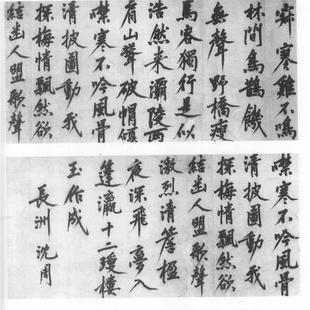 寒雞不鳴
林間烏鵲饑
無聲野橋瘦
馬客獨行是似
浩然來灞陵兩
肩山聳破帽傾
噤寒不吟風骨
清披圖動我
探梅情飄然欲
結幽人盟歌聲
噤寒不吟風骨
清披圖動我
探梅情飄然欲
結幽人盟歌聲
激烈清簷楹
夜深飛夢入
蓬瀛十二瓊樓
玉作成
長洲沈周